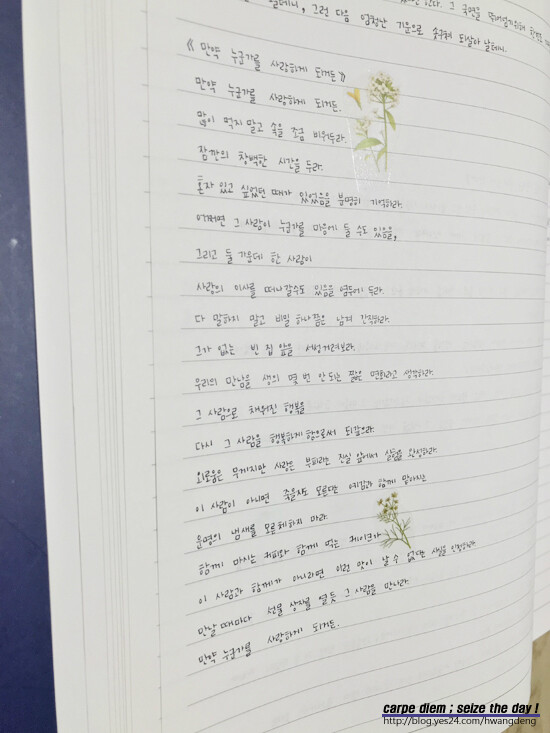 날테니, 그런 다음 엄청난 기운으로 솟구쳐 되살아 날테니.
《만약 누군가를 사랑하게 되거든》
만약 누군가를 사랑하게 되거든.
많이 먹지 말고 속을 조금 비워두라.
잠깐의 창백한 시간을 두라.
혼자 있고 싶었던 때가 있었음을 분명히 기억하라.
어쩌면 그 사람이 누군가를 마음에 둘 수도 있음을,
그리고 둘 가운데 한 사람이
사랑의 이사를 떠나갈수도 있음을 염두에 두라.
다 말하지 말고 비밀 하나쯤은 남겨 간직하라.
그가 없는 빈 집 앞을 서성거려보라.
우리의 만남을 생의 몇 번 안되는 짧은 면회라고 생각하라.
그 사람으로 채워진 행복을
다시 그 사람을 행복하게 함으로써 되갚으라.
외로움은 무게지만 사랑은 부피라는 진실 앞에서 실험을 완성하라.
이 사람이 아니면 죽을지도 모른다는 예감과 함께 맡아지는
운명의 냄새를 모른체하지 마라.
함께 마시는 커피와 함께 먹는 케이크가
이 사람과 함께가 아니라면 이런 맛이 날 수 없다는 사실을 인정하라.
만날 때마다 선물 상자를 열듯 그 사람을 만나라.
만약 누군가를 사랑하게 되거든.
carpe diem ; seize the day !
http://blog.yes24.com/hwangdeng